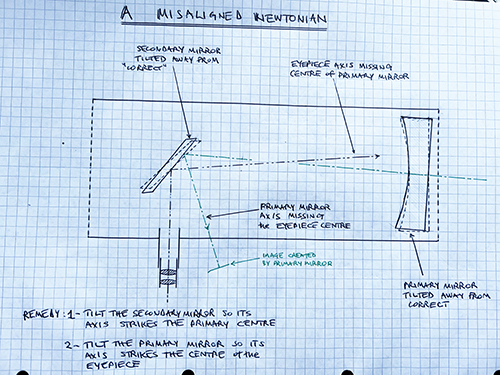 A MISALIGNED NEWTONIAN
SECONDARY MIRROR
TILTED AWAY FROM
"CORRECT"
EYEPIECE AXIS MISSING
CENTRE OF PRIMARY MIRROR
PRIMARY MIRROR
AXIS MISSING
the EYEPIECE CENTRE
IMAGE CREATED
BY PRIMARY MIRROR
PRIMARY MIRROR
TILTED AWAY FROM
CORRECT
REMEDY: 1- TILT THE SECONDARY MIRROR SO ITS
AXIS STRIKES THE PRIMARY CENTRE
2- TILT THE PRIMARY MIRROR SO ITS
AXIS STRIKES THE CENTRE of the
EYEPIECE